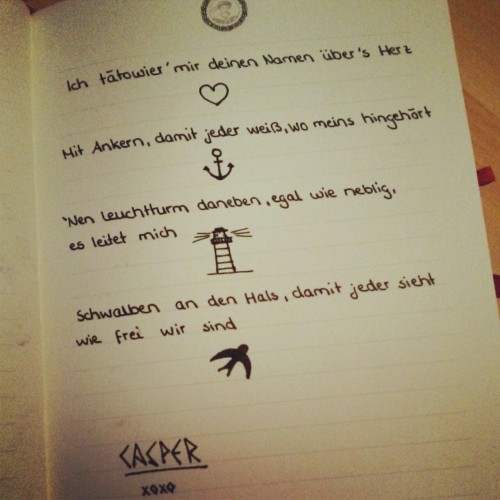 Ich tätowier' mir deinen Namen über's Herz
Mit Ankern, damit jeder weiß, wo meins hingehört
'Nen Leuchtturm daneben, egal wie neblig,
es leitet mich
Schwalben an den Hals, damit jeder sieht
wie frei wir sind
CASPER
xoxo